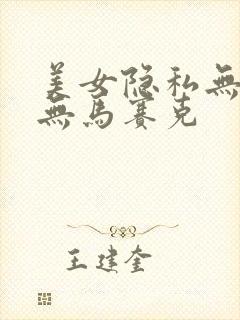 美女隐私無
無馬賽克
王建奎